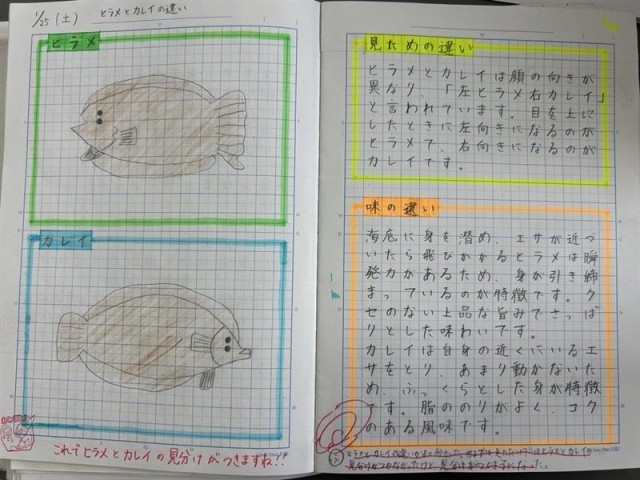 1/25(土) ヒラメとカレイの違い
ヒラメ
カレイ
これでヒラメとカレイの見分けがつきますね!!
見ための違い
ヒラメとカレイは顔の向きが
異なり、「左ヒラメ右カレイ」
と言われています。目を上に
したときに左向きになるのが
ヒラメで、右向きになるのが
カレイです。
味の違い
海底に身を潜め、エサが近づ
いたら飛びかかるヒラメは瞬
発力があるため、身が引き締
まっているのが特徴です。ク
セのない上品な旨みでさっぱ
りとした味わいです。
カレイは自身の近くにいるエ
サをとり、あまり動かないた
め、ふっくらとした身が特徴
です。脂ののりがよく、コク
のある風味です。